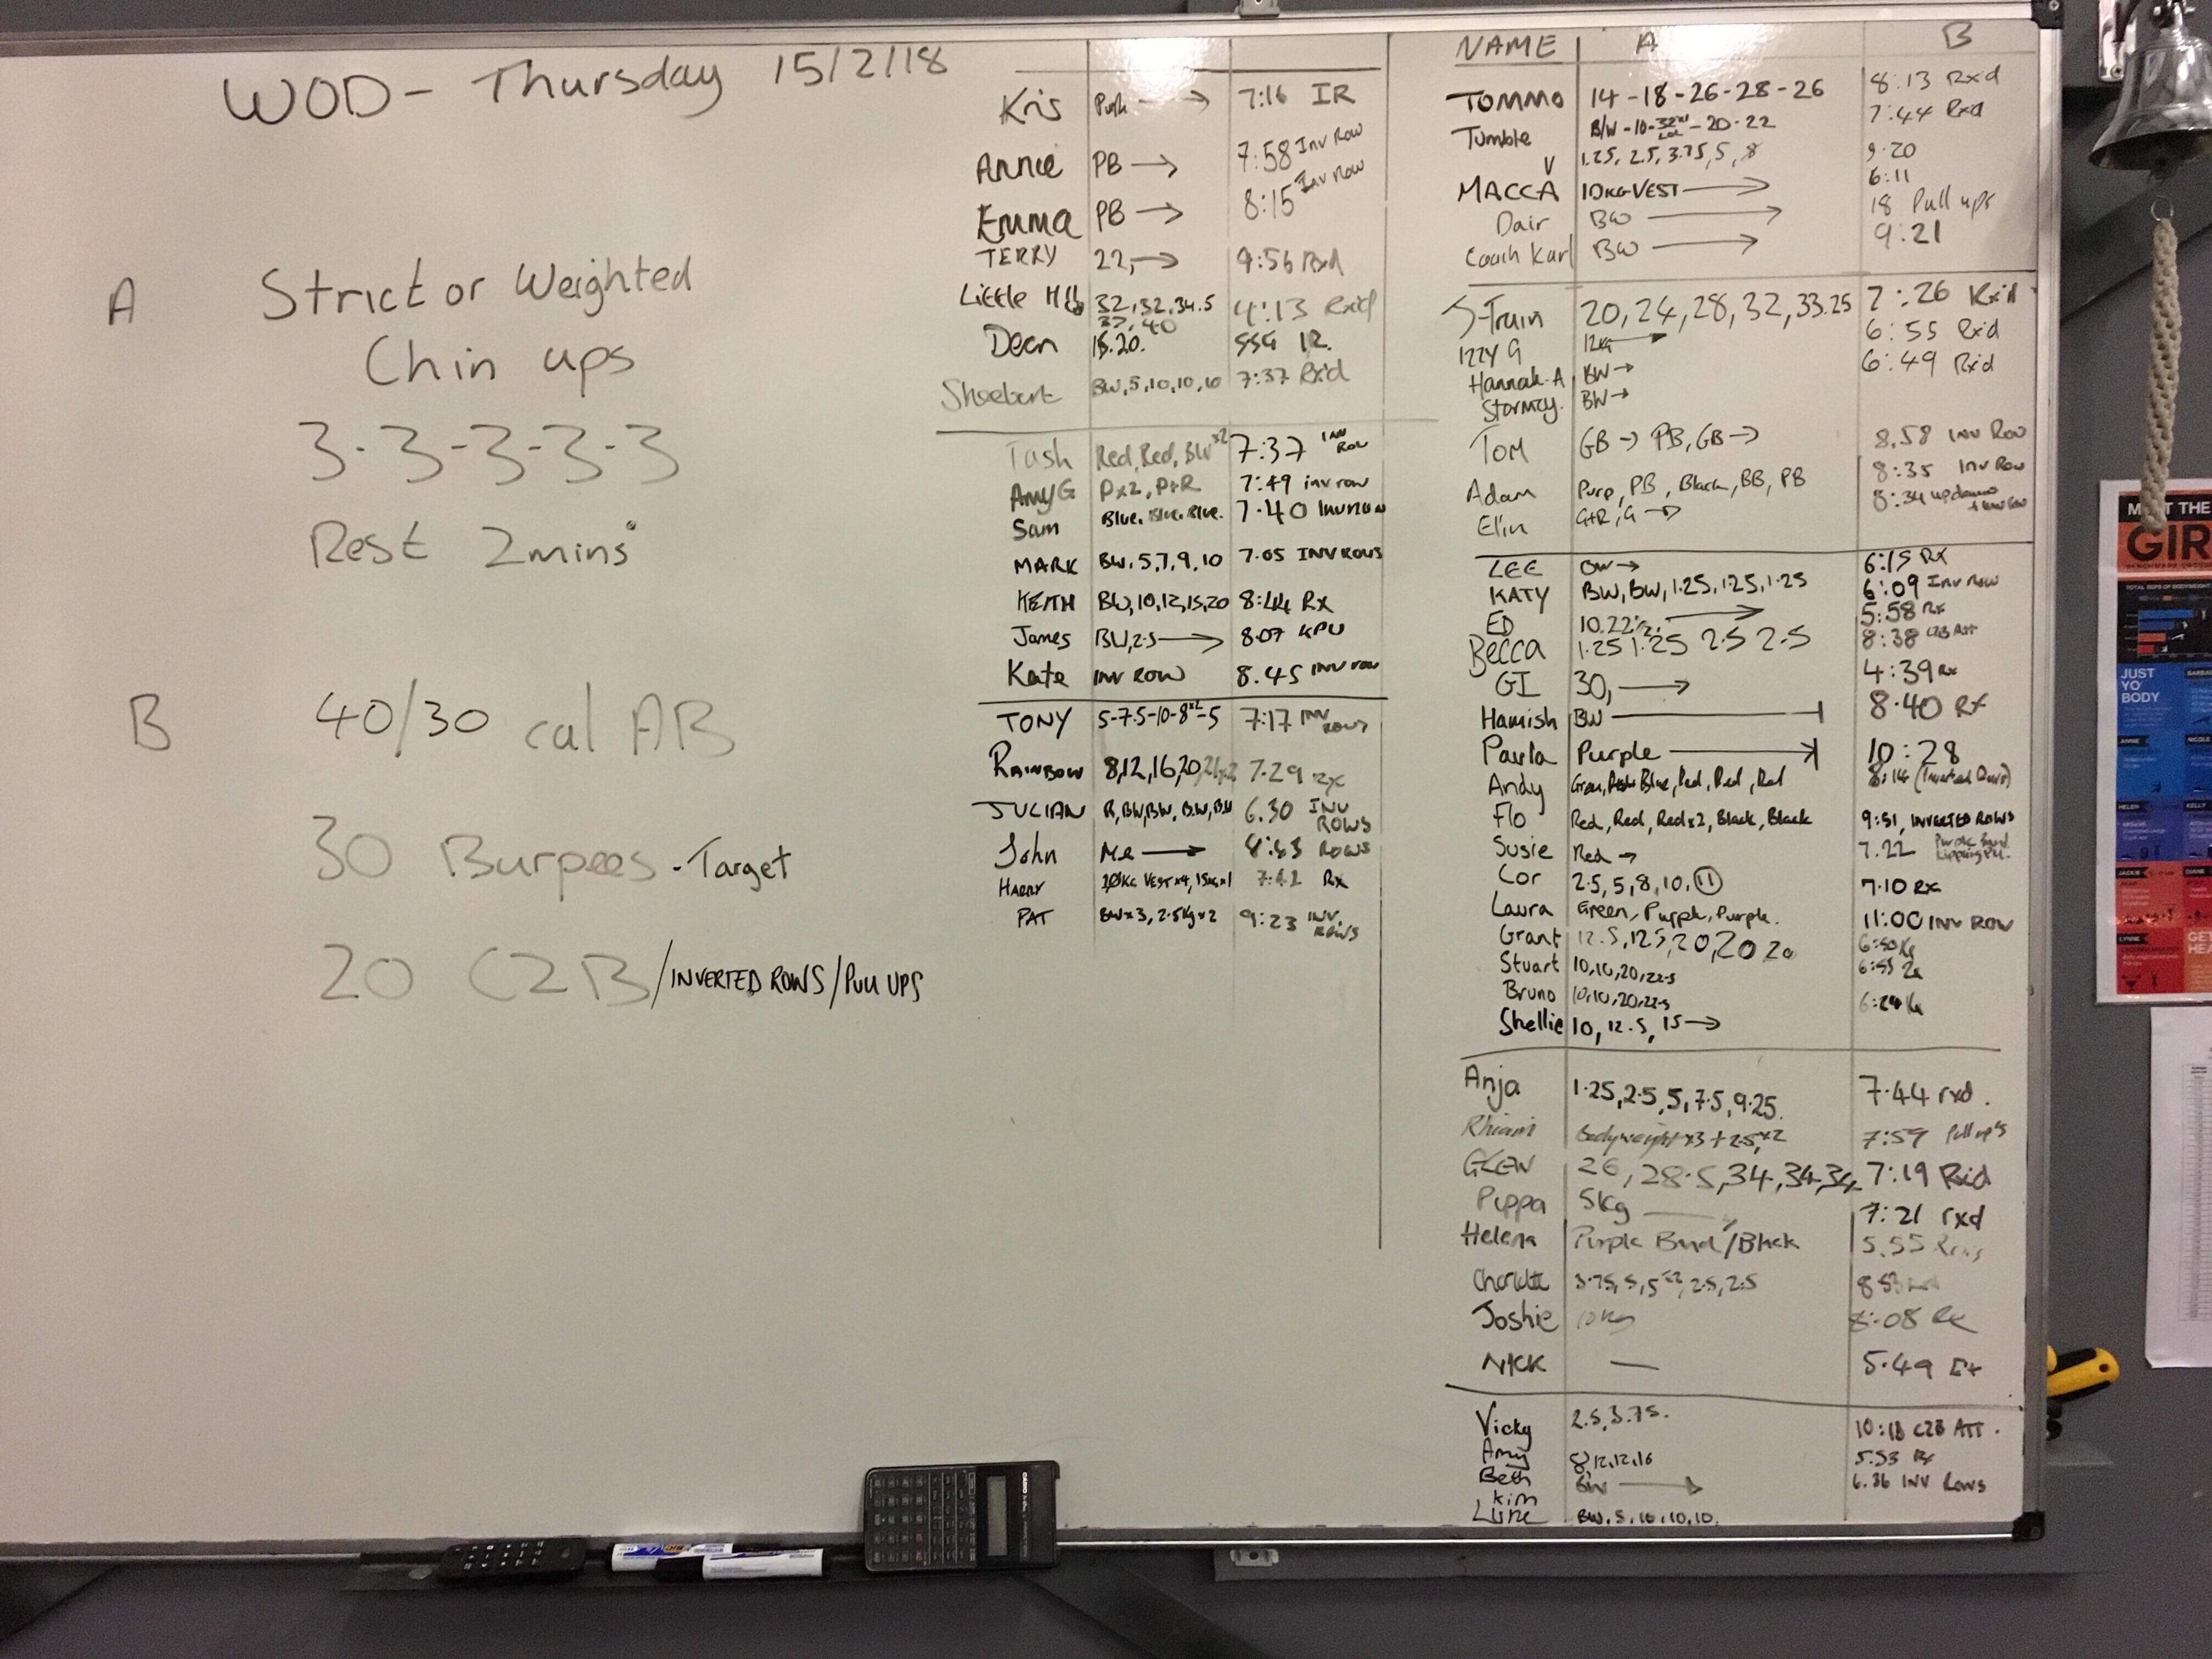 WOD - Thursday 15/2/18
A Strict or Weighted
Chin ups
3-3-3-3-3
Rest 2mins
B 40/30 cal AB
30 Burpees - Target
20 C2B/INVERTED ROWS/PULL UPS
Kris Push → 7:16 IR
Annie PB → 7:58 Inv Row
Emma PB → 8:15 Inv Row
TERRY 22, → 9:56 Rxd
Little 32, 32, 34.5 4:13 Rx'd
37, 40
Dean 15.20. SSG IR.
Shoebert BW, 5, 10, 10, 10 7:37 Rx'd
Tash Red, Red, BW x2 7:37 INV ROW
Amy G Px2, P+R 7:49 inv row
Sam Blue, Blue, Blue. 7.40 Inv row
MARK BW, 5, 7, 9, 10 7.05 INV ROWS
KEITH BW, 10, 12, 15, 20 8:44 Rx
James BW, 2.5 → 8.07 KPU
Kate INV ROW 8.45 INV row
TONY 5-7.5-10-8x2-5 7:17 INV ROWS
RAINBOW 8, 12, 16, 20, 7.29 Rx
JULIAN R, BW, BW, BW, BW 6.30 INV ROWS
John → ROWS
HARRY 20KG VEST x4, 15KG x1 7:42 Rx
PAT BW x3, 2.5Kg x2 9:23 INV. ROWS
NAME A B
TOMMO 14-18-26-28-26 8:13 Rx'd
Tumble B/W-10- -20-22 7:44 Rxd
V 1.25, 2.5, 3.75, 5, 8 9.20
MACCA 10KG VEST → 6:11
Dair BW → 18 Pull ups
Coach Karl BW → 9:21
J-Train 20, 24, 28, 32, 33.25 7:26 Rx'd
IZZY G 12KG → 6:55 Rx'd
Hannah. A BW → 6:49 Rx'd
Stormzy. BW →
Tom GB → PB, GB → 8.58 INV ROW
Adam Purp, PB, Black, BB, PB 8:35 Inv Row
Elin G+R, G → 8:34 updowns + Inv Row
LEE BW → 6:15 RX
KATY BW, BW, 1.25, 1.25, 1.25 6:09 Inv Row
ED 10. → 5:58 Rx
Becca 1.25 1.25 2.5 2.5 8:38 ATT
GI 30, → 4:39 Rx
Hamish BW → 8.40 Rx
Paula Purple → 10:28
Andy Blue, Red, Red, Red 8:14 (Inverted Rows)
Flo Red, Red, Red x2, Black, Black 9:51, INVERTED ROWS
Susie Red → 7.22 Purple Band
Cor 2.5, 5, 8, 10, 11 7.10 Rx
Laura Green, Purple, Purple. 11:00 INV ROW
Grant 12.5, 12.5, 20, 20 20 6:50 Rx
Stuart 10, 10, 20, 22.5 6:55 Rx
Bruno 10, 10, 20, 22.5 6:24 Rx
Shellie 10, 12.5, 15 →
Anja 1.25, 2.5, 5, 7.5, 9.25. 7.44 rxd.
Rhiain Bodyweight x3 + 2.5 x2 7:59 Pull up's
GLEN 26, 28.5, 34, 34, 34 7:19 Rxd
Pippa 5Kg 7:21 rxd
Helena Purple Band/Black 5.55 Rows
Charlotte 3.75, 5, 5 x2, 2.5, 2.5 8 53
Joshie 10Kg 8:08 Rx
NICK — 5.49
Vicky 2.5, 3.75. 10:18 C2B ATT.
Amy 8, 12, 12, 16 5.53 Rx
Beth BW → 6.36 INV ROWS
Kim
Luke BW, 5, 10, 10, 10.
MEET THE
GIR
JUST
YO'
BODY
ANNIE
NICOLE
HELEN
KELLY
JACKIE
DIANE
LYNNE
CASIO